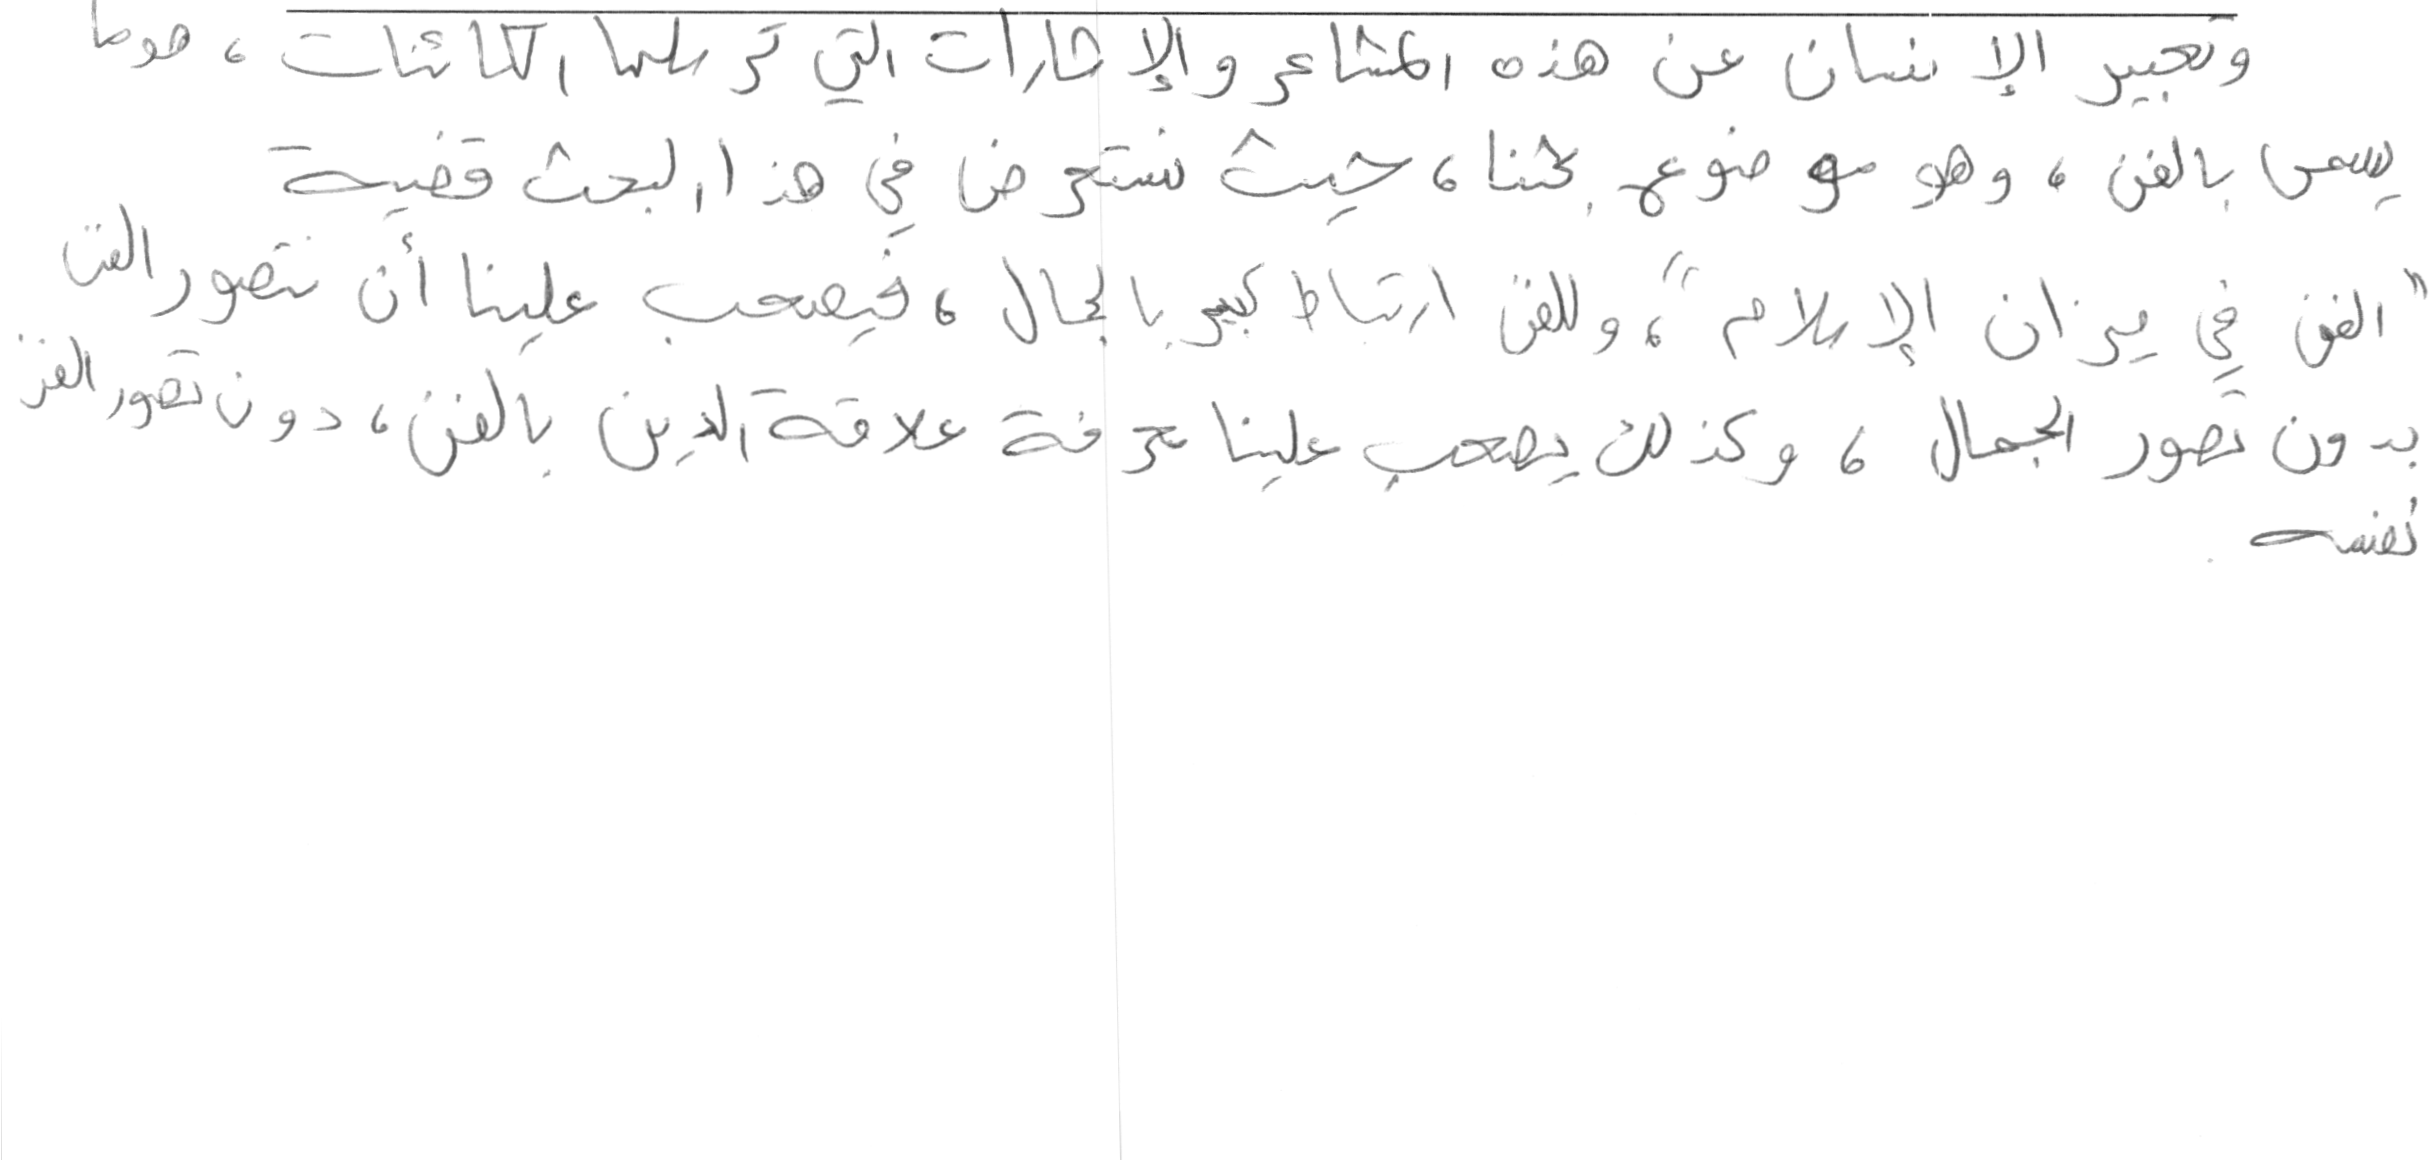 وتعبير الإنسان عن هذه المشاعر والإشارات التي ترسلها الكائنات، هو ما
يسمى بالفن، وهو موضوع بحثنا، حيث نستعرض في هذا البحث قضية
"الفن في ميزان الإسلام"، وللفن ارتباط كبير بالجمال، فيصعب علينا أن نتصور الفن
بدون تصور الجمال، وكذلك يصعب علينا معرفة علاقة الدين بالفن، دون تصور الفن
نفسه.